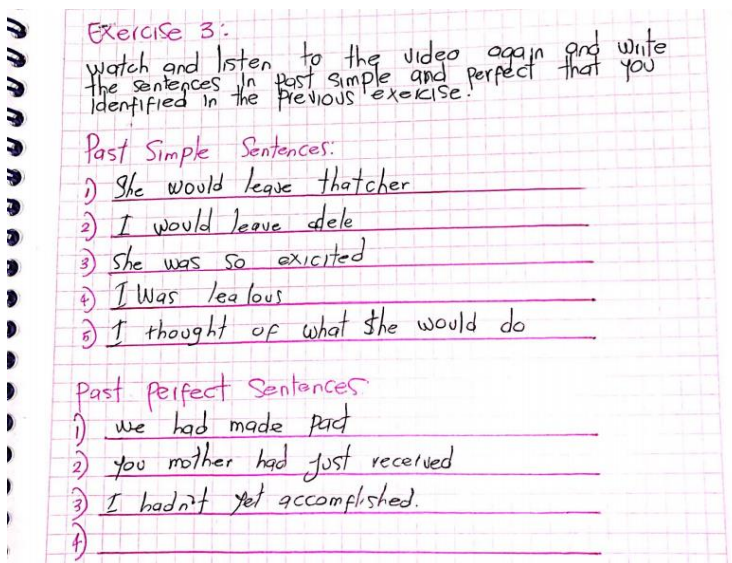 Exercise 3:
Watch and listen to the video again and write
the sentences in past simple and perfect that you
idenfified in the previous exercise.
Past Simple Sentences:
1) She would leave thatcher
2) I would leave dele
3) She was so exicited
4) I Was lealous
5) I thought of what she would do
Past perfect Sentences
1) we had made pact
2) you mother had just received
3) I hadn't yet accomplished.
4)